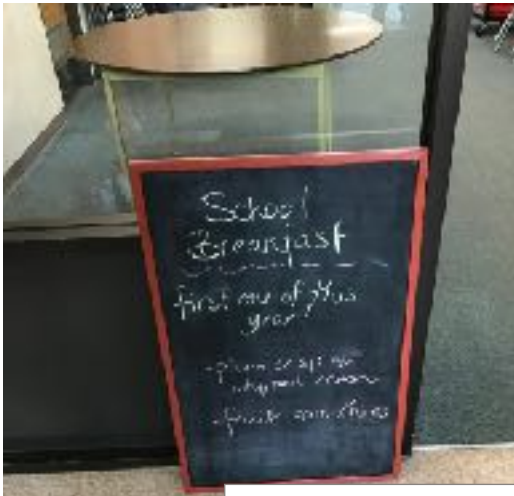 School
Breakfast
first one of this
year!
whipped cream
- fruit smoothies